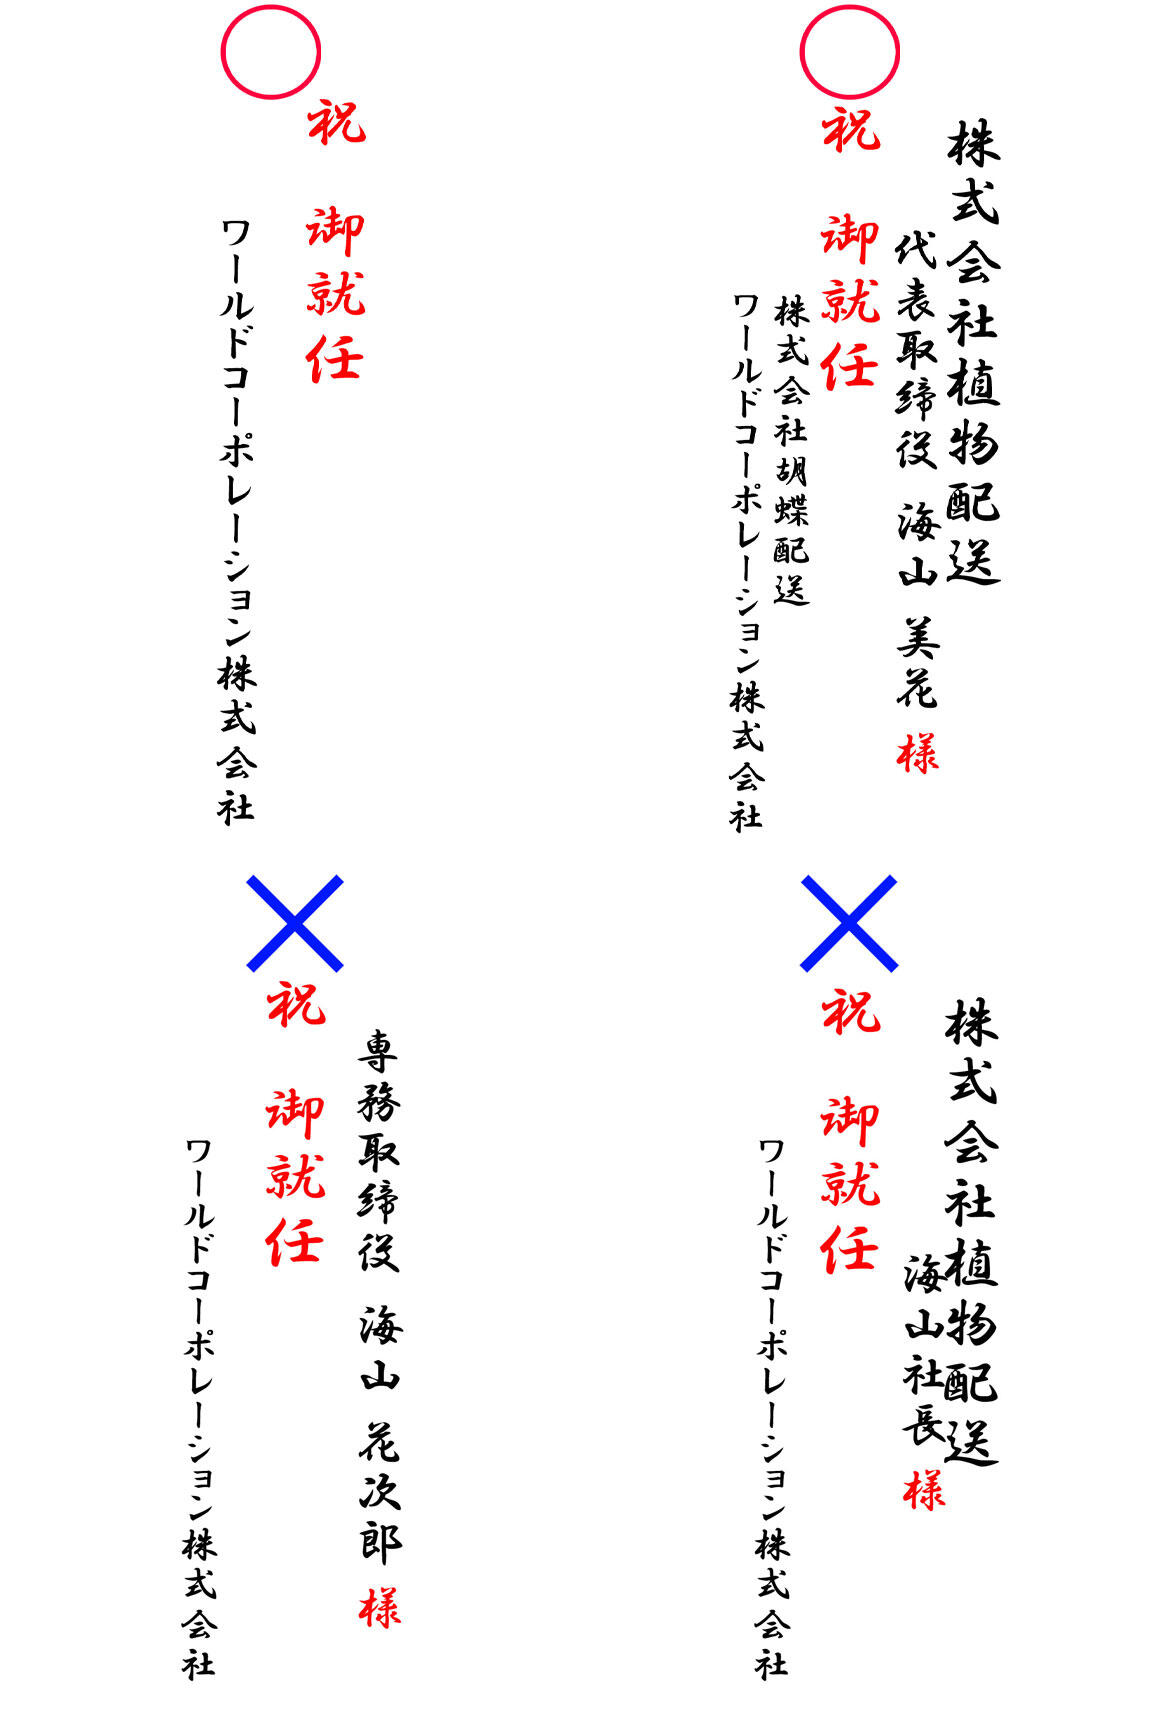 祝 御就任
ワールドコーポレーション株式会社
株式会社植物配送
代表取締役 海山 美花 様
祝 御就任
株式会社胡蝶配送
ワールドコーポレーション株式会社
専務取締役 海山 花次郎 様
祝 御就任
ワールドコーポレーション株式会社
株式会社植物配送
海山社長 様
祝 御就任
ワールドコーポレーション株式会社